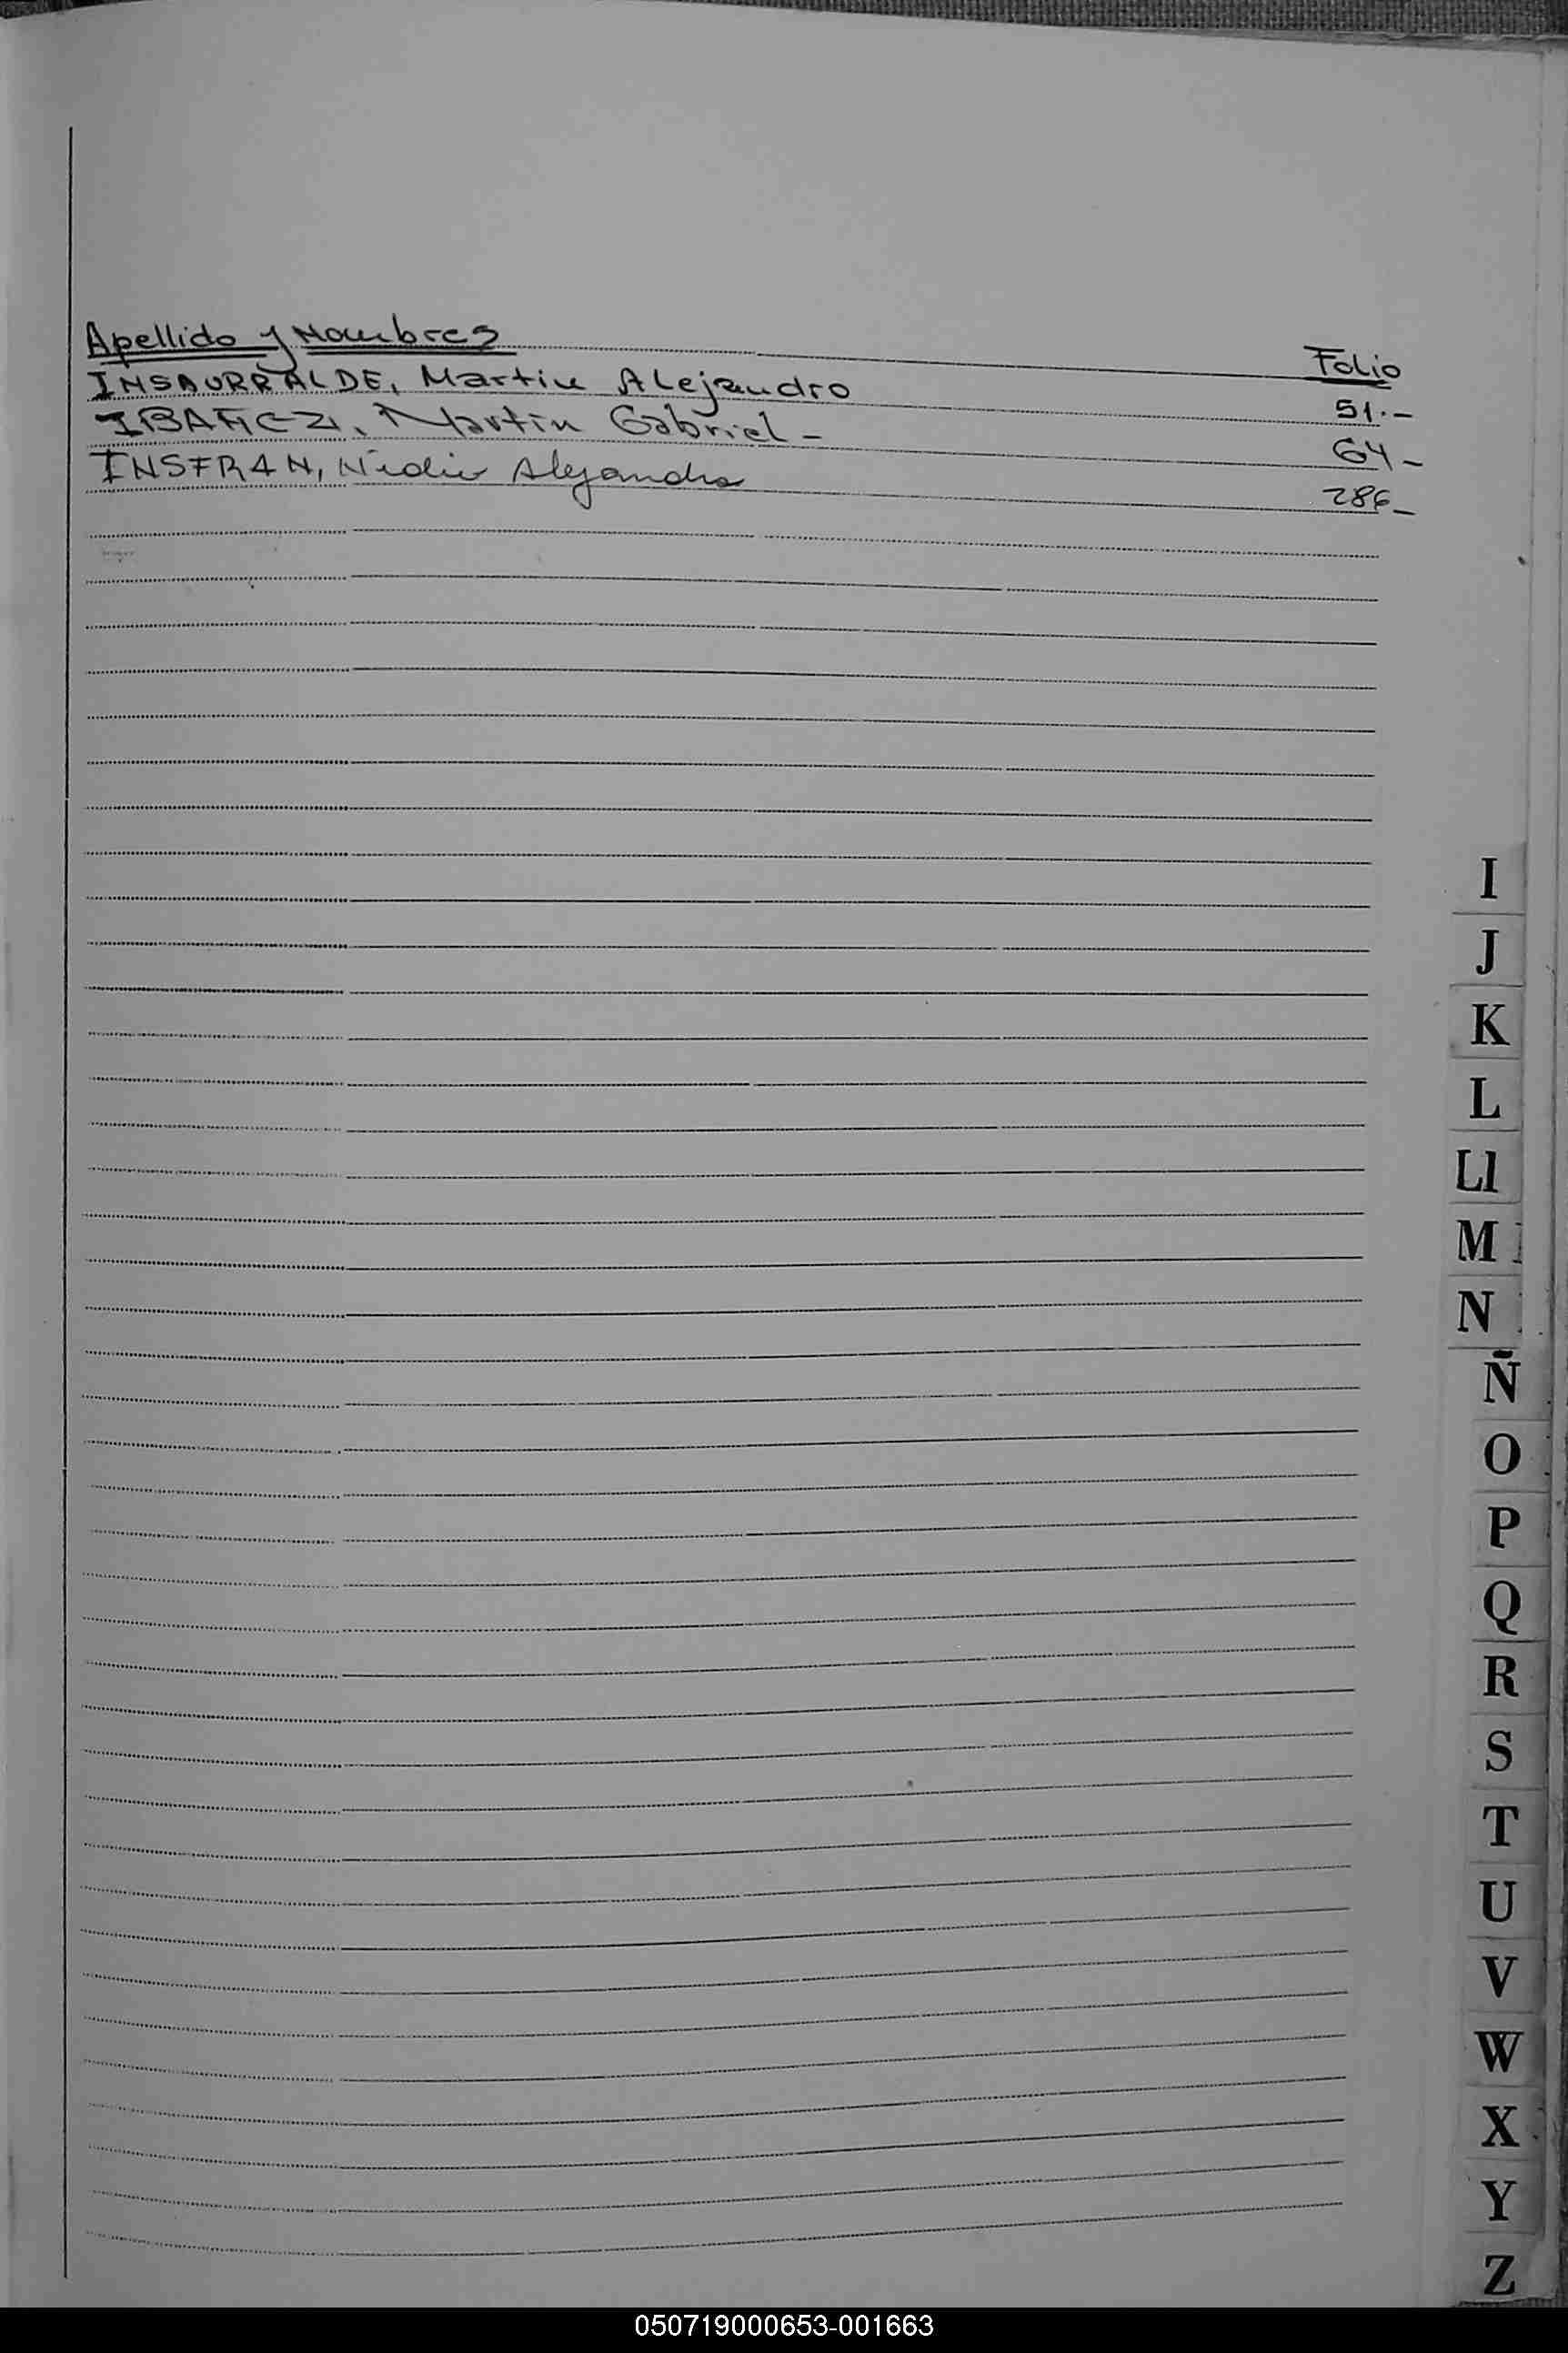 Apellido y Nombres Folio
INSAURRALDE, Martin Alejandro 51.-
IBAÑEZ, Martin Gabriel - 64-
INSFRAN, Nidia Alejandra 286-
I
J
K
L
Ll
M
N
Ñ
O
P
Q
R
S
T
U
V
W
X
Y
Z
050719000653-001663